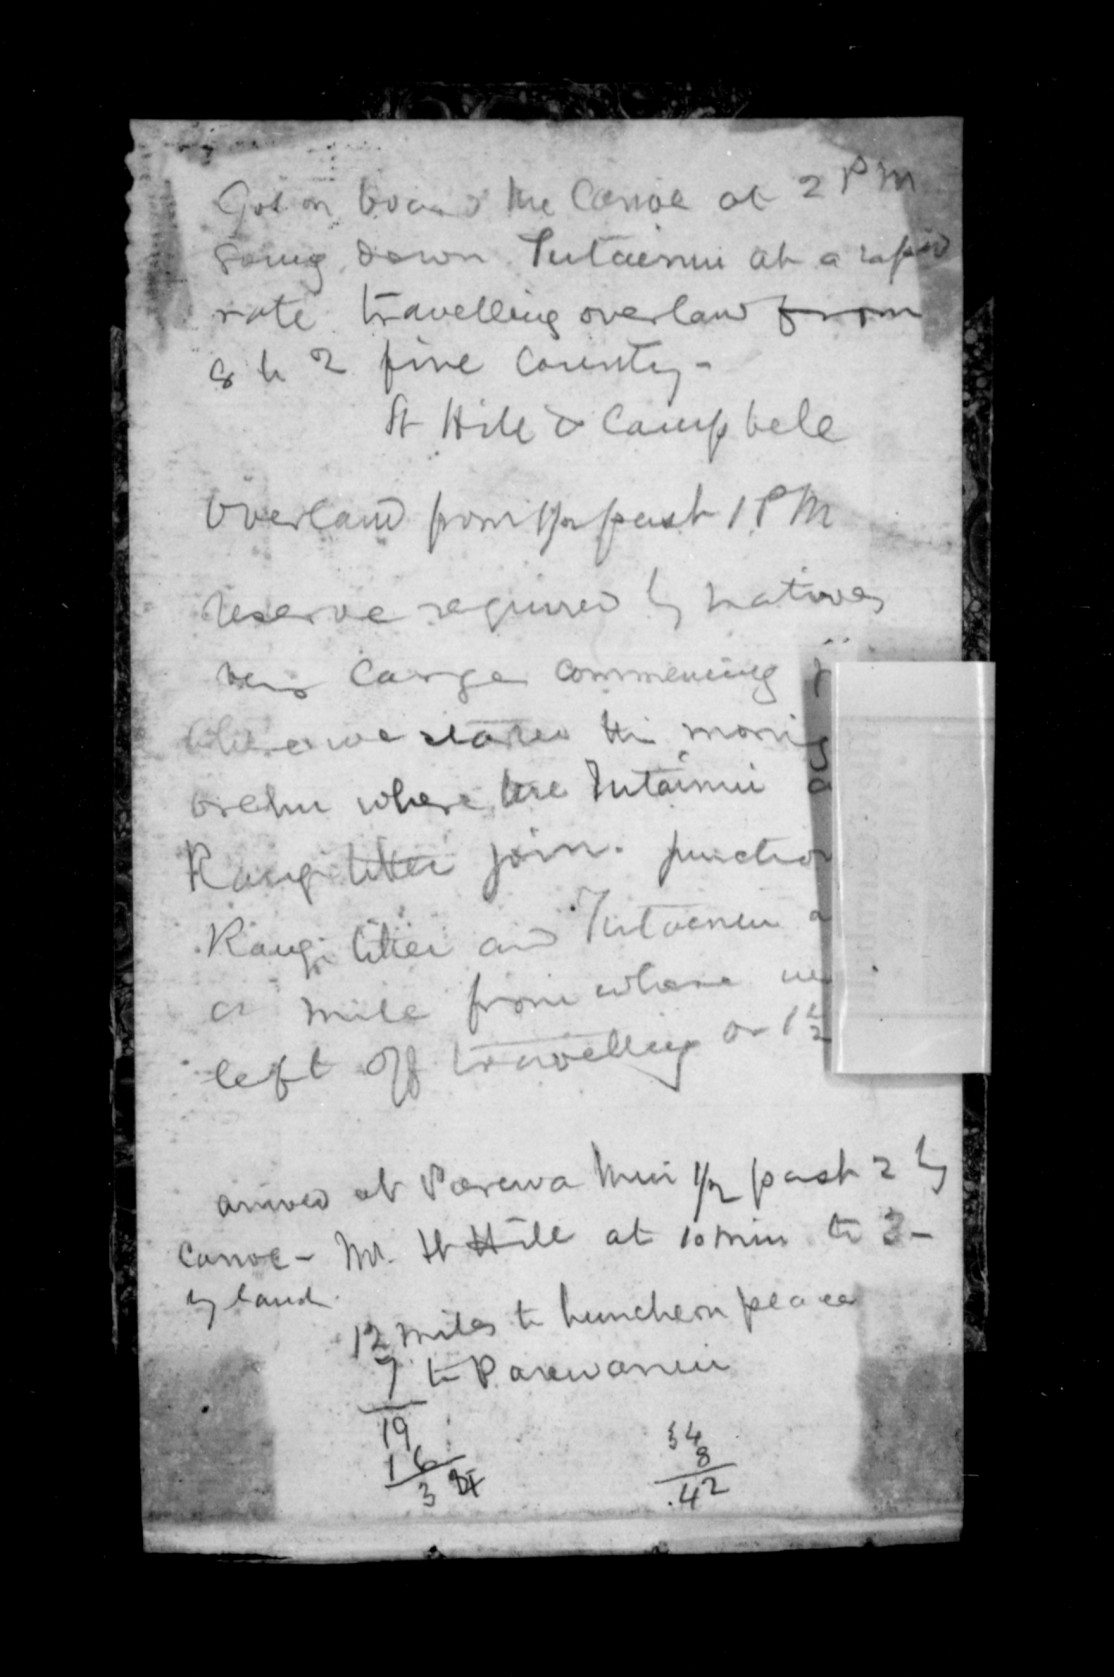 Got on board the Canoe at 2 PM
going down Tutaenui at a rapid
rate travelling overland from
8 to 2 fine County -
St Hill & Campbell
Overland from 1/2 past 1 PM
reserve required by natives
very large commencing
where we started this morning
where the Tutainui
Rangitikei join. junction
Rangitikei and Tutaenui
a mile from where we
left off travelling or 1 1/2
arrived at Parewanui 1/2 past 2 by
Canoe - Mr. St Hill at 10 min to 3 -
by land.
12 miles to luncheon place
7 to Parewanui
19
16
34
34
8
42